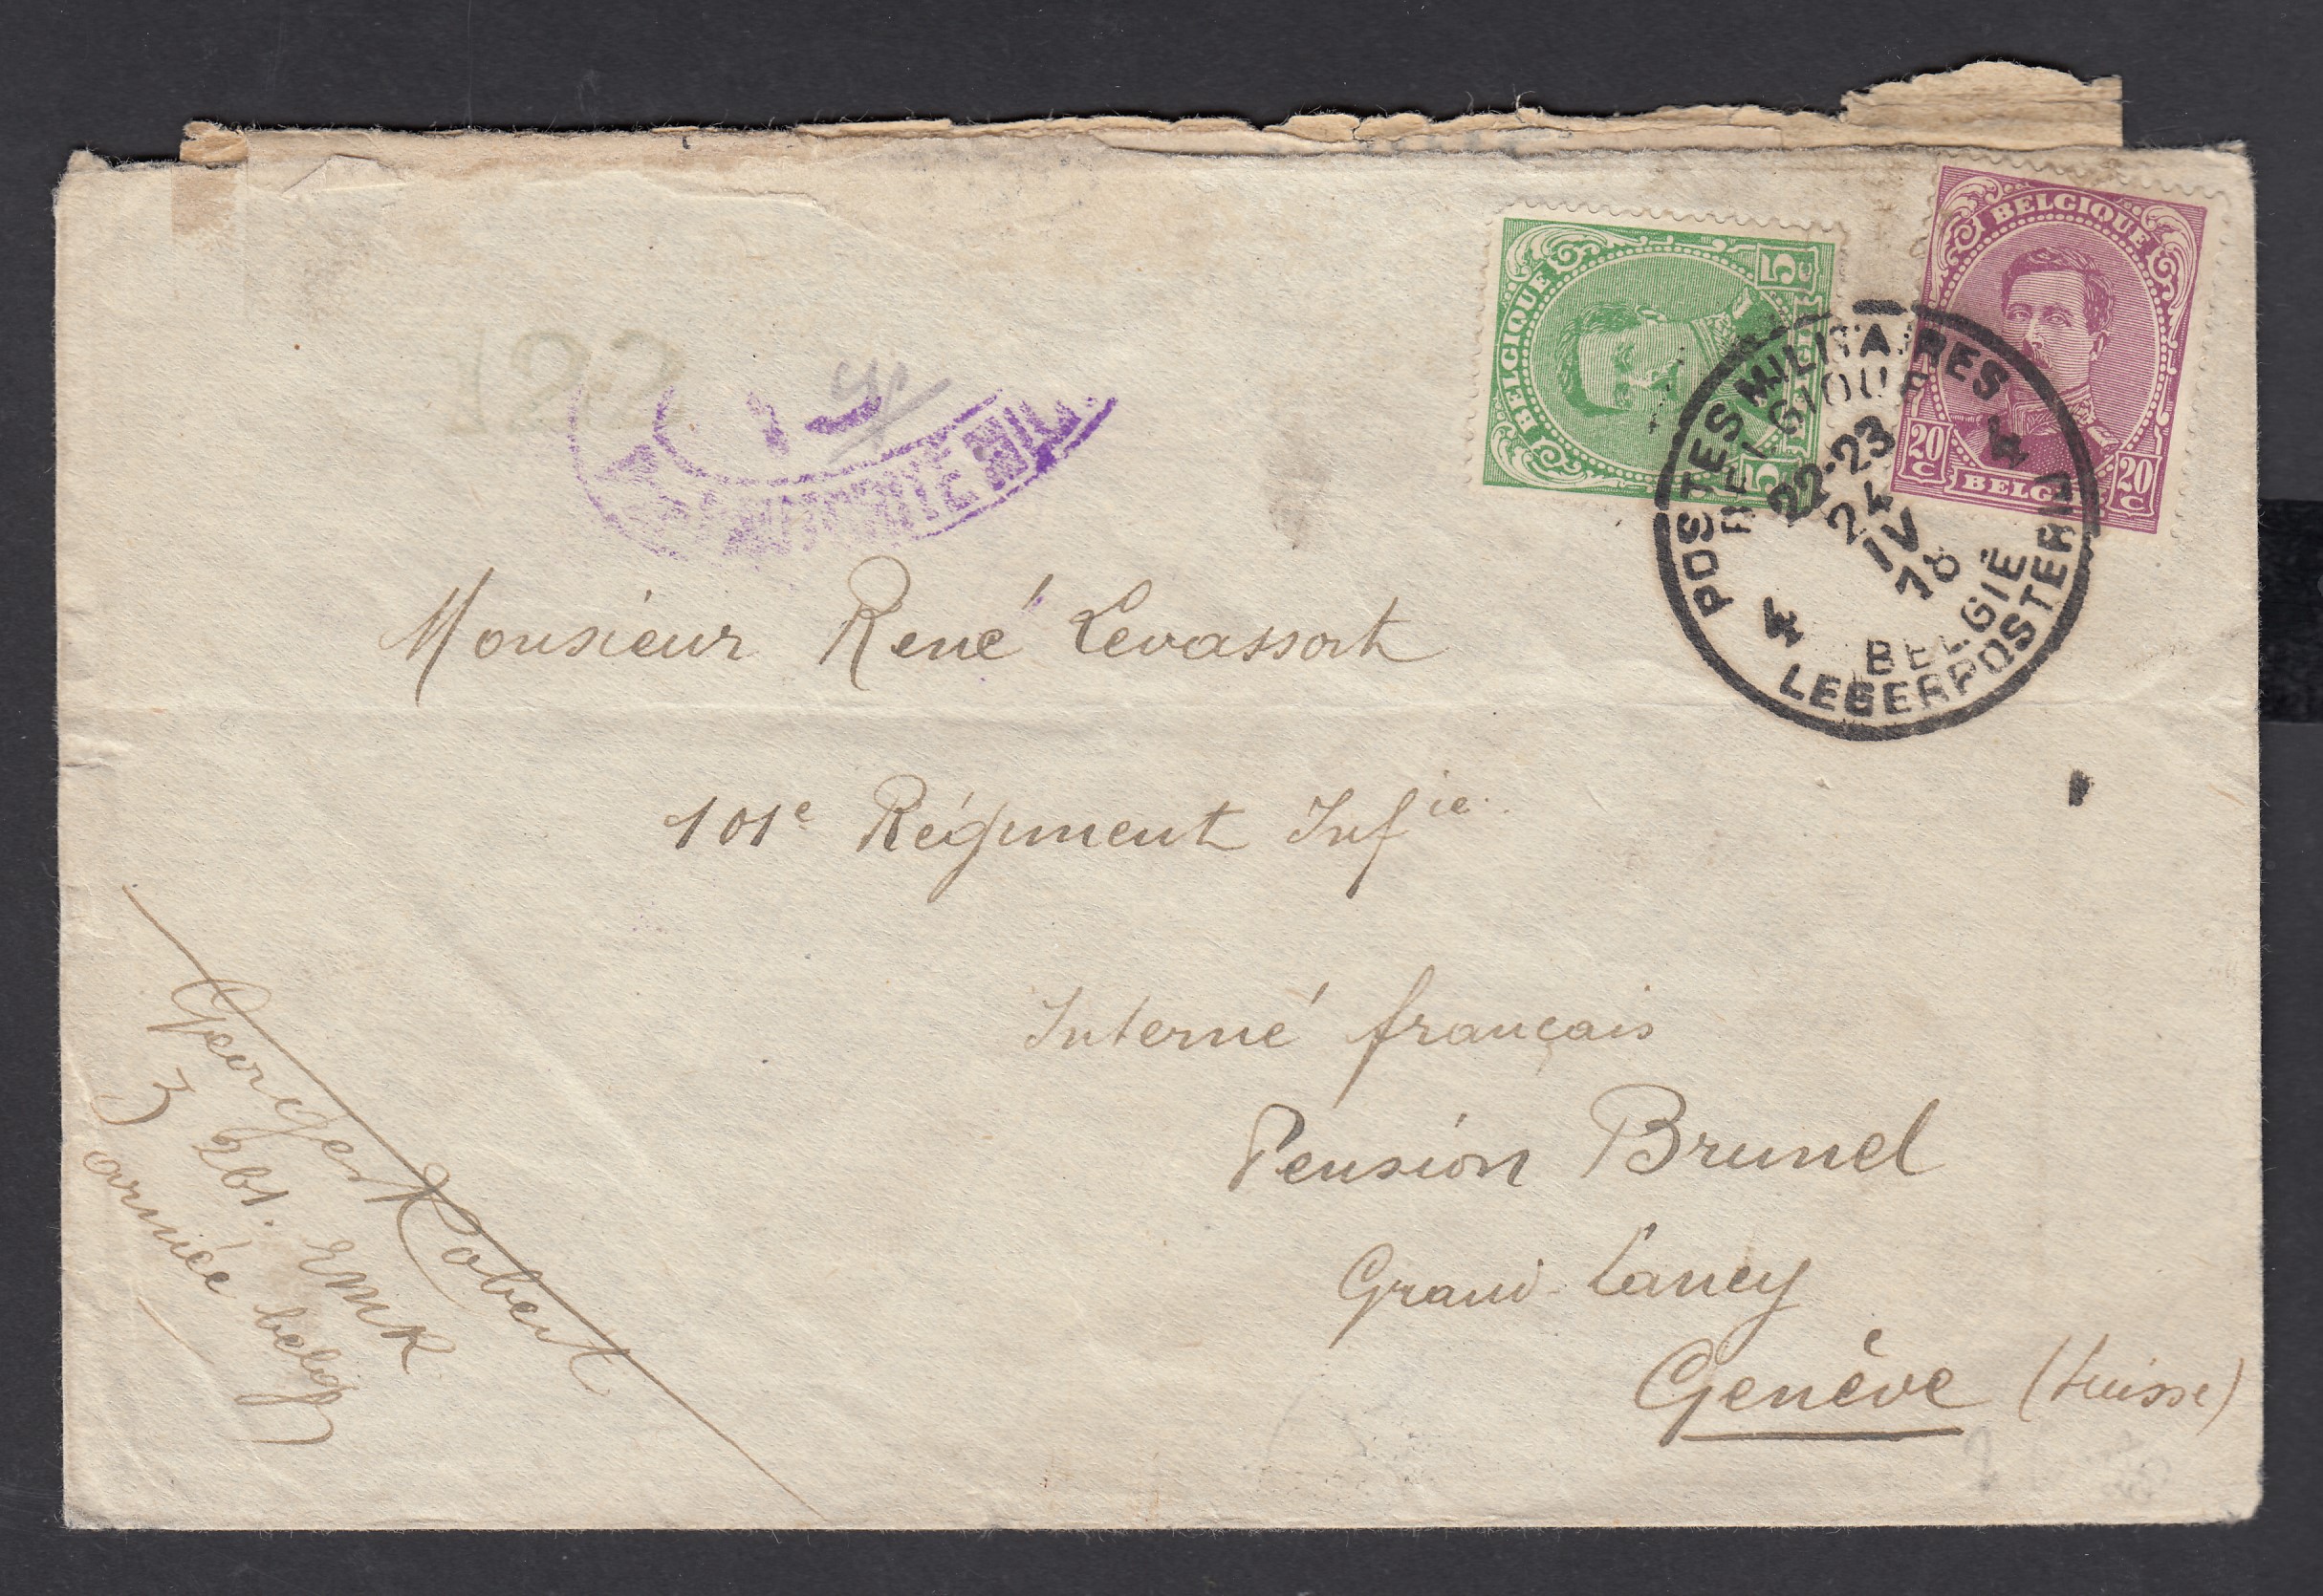 BELGIQUE
5c
5
BELGIQUE
20c 20c
BELG
POSTES MILITAIRES
BELGIQUE
4
22-23
24
IV
18
4
BELGIË
LEGERPOSTERIJ
122
AUTORITE MIL
Monsieur René Levassort
101e Régiment Infie.
Interné français
Pension Brunel
Grand-Lancy
Genève (Suisse)
Georges Robert
armée belge